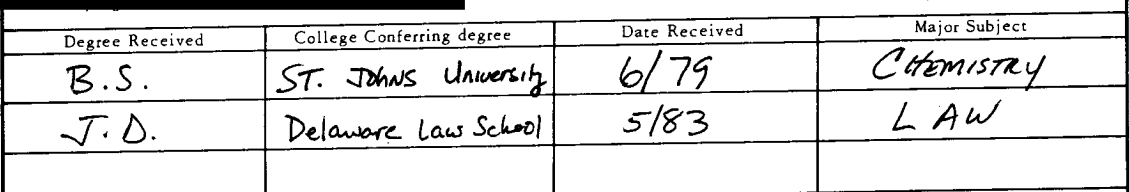 Degree Received College Conferring degree Date Received Major Subject
B.S. ST. JOHNS University 6/79 CHEMISTRY
J.D. Delaware Law School 5/83 LAW